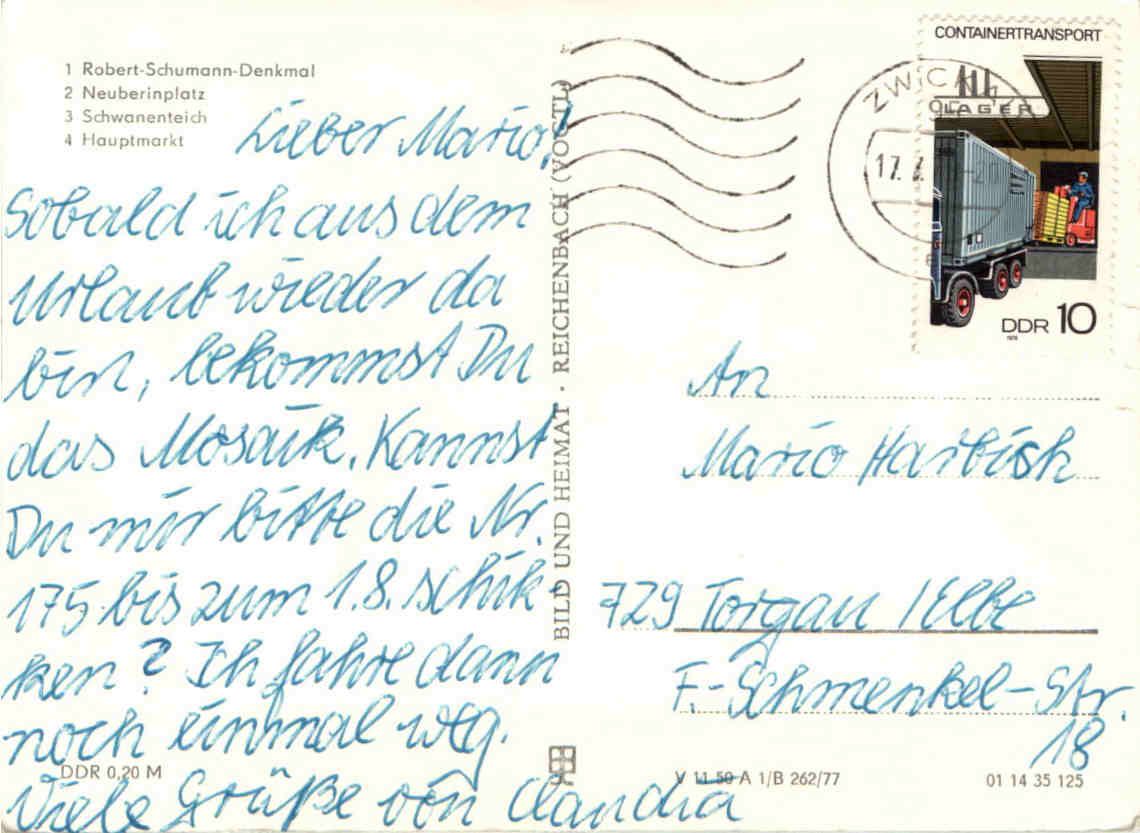 1 Robert-Schumann-Denkmal
2 Neuberinplatz
3 Schwanenteich
4 Hauptmarkt
Lieber Mario!
Sobald ich aus dem
Urlaub wieder da
bin, bekommst Du
das Mosaik. Kannst
Du mir bitte die Nr.
175 bis zum 1.8. schik-
ken? Ich fahre dann
noch einmal weg.
Viele Grüße von Claudia
DDR 0,20 M
BILD UND HEIMAT · REICHENBACH (VOGTL)
CONTAINERTRANSPORT
DDR 10
1978
ZWICK
LAGER
17.
An
Mario Harbich
729 Torgau / Elbe
F.-Schmenkel-Str.
18
V 11 50 A 1/B 262/77
01 14 35 125